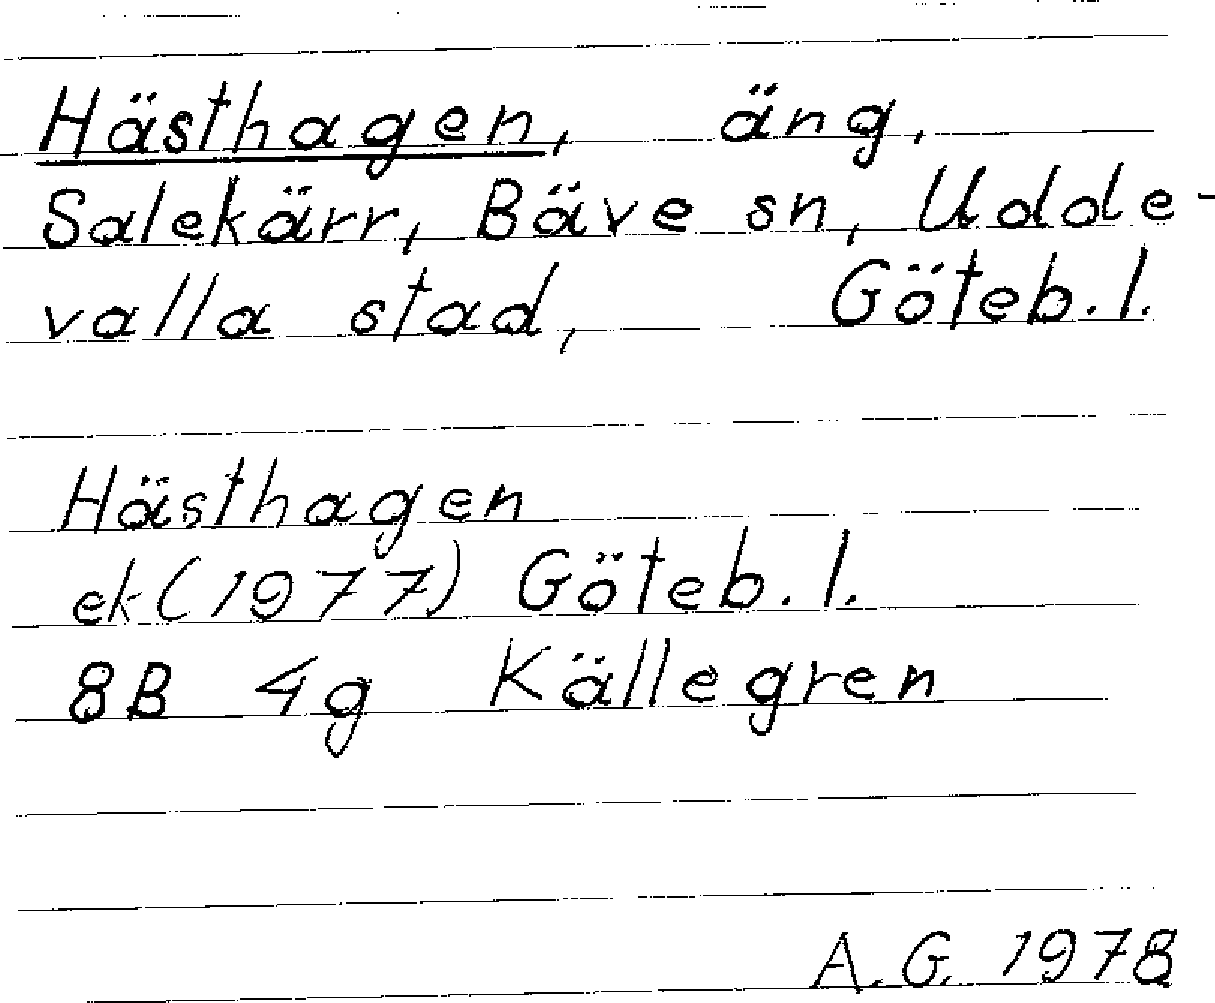 Hästhagen, äng,
Salekärr, Bäve sn, Udde-
valla stad, Göteb.l.
Hästhagen
ek(1977) Göteb.l.
8B 4g Källegren
A.G. 1978